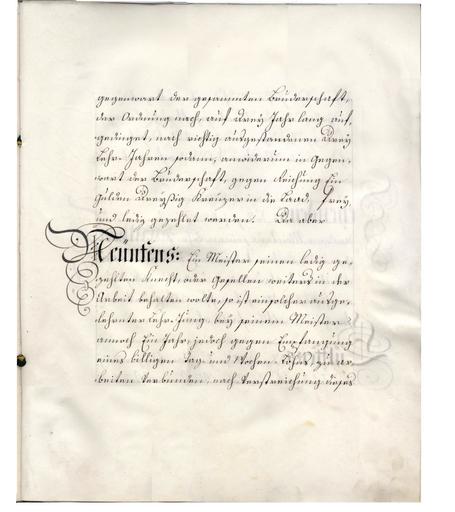 gegenwart der gesammten Bruderschaft,
der Ordnung nach, auf Drey Jahr lang auf,
gedinget, nach richtig ausgestandenen Drey
Lehr-Jahren sodann, anwiderum in Gegen-
wart der Bruderschaft, gegen Reichung Ein
Gulden Dreyßig Kreuzer in die Laad, Frey,
und ledig gezehlet werden. Da aber
Neüntens: Ein Meister seinen ledig ge-
zehlten Knecht, oder Gesellen weiters in der
Arbeit behalten wolte, so ist ein solcher ausge-
lehrnter Lehr-Jung bey seinem Meister
annoch Ein Jahr, jedoch gegen Empfangung
eines billigen Tag- und Wochen-Lohns zu ar-
beiten verbunden, nach Verstreichung dieses